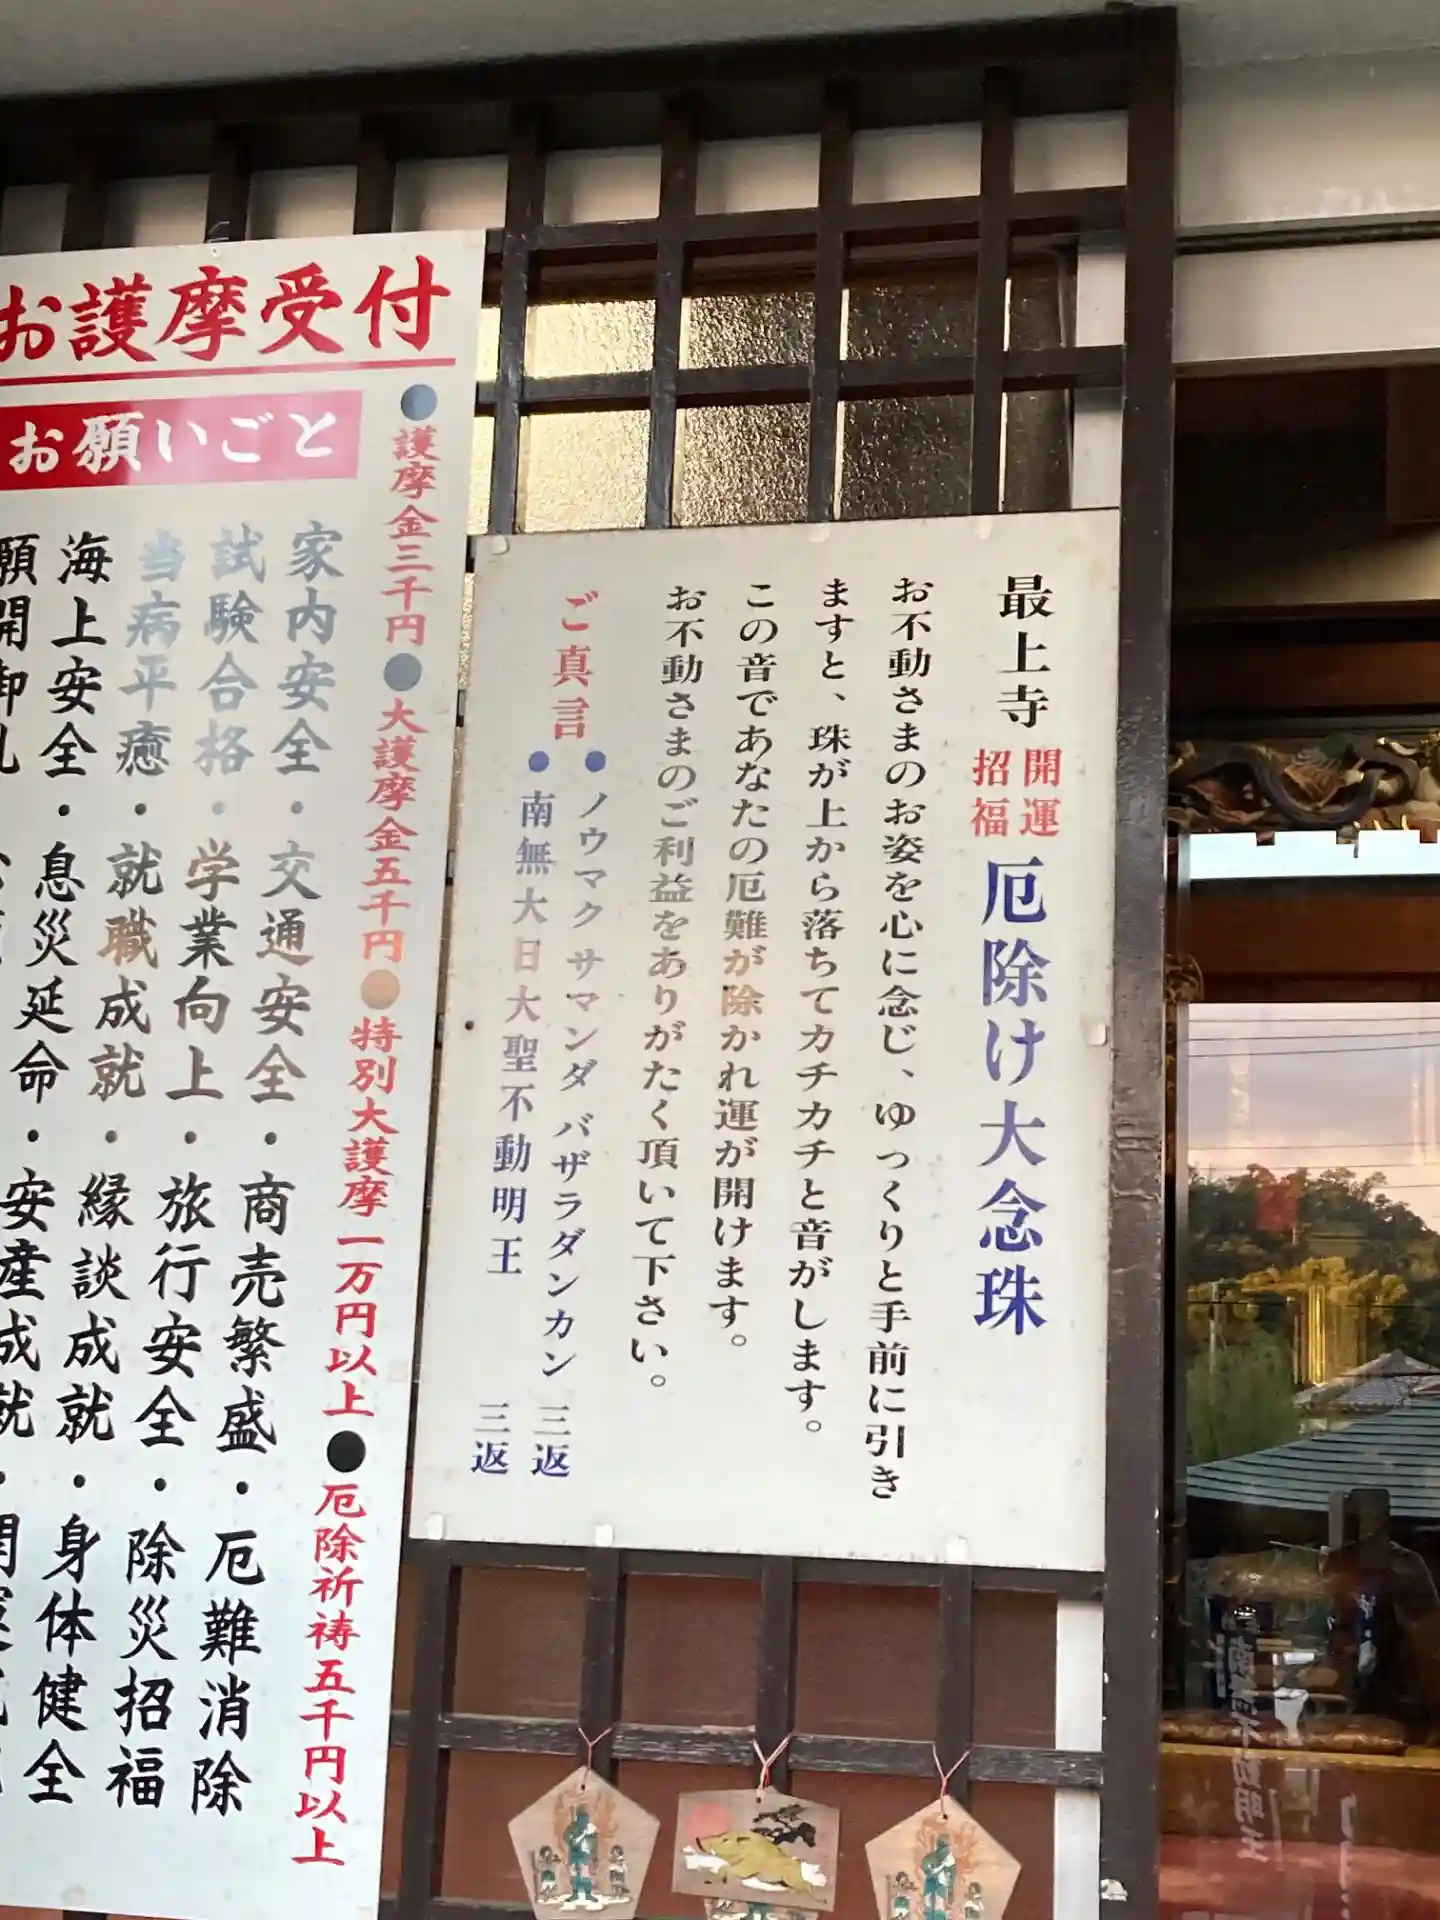 お護摩受付
お願いごと
●護摩金三千円●大護摩金五千円●特別大護摩一万円以上●厄除祈祷五千円以上
家内安全・交通安全・商売繁盛・厄難消除
試験合格・学業向上・旅行安全・除災招福
当病平癒・就職成就・縁談成就・身体健全
海上安全・息災延命・安産成就・開
願開御札
最上寺 開運招福 厄除け大念珠
お不動さまのお姿を心に念じ、ゆっくりと手前に引き
ますと、珠が上から落ちてカチカチと音がします。
この音であなたの厄難が除かれ運が開けます。
お不動さまのご利益をありがたく頂いて下さい。
ご真言
●ノウマク サマンダ バザラダンカン 三返
●南無大日大聖不動明王 三返